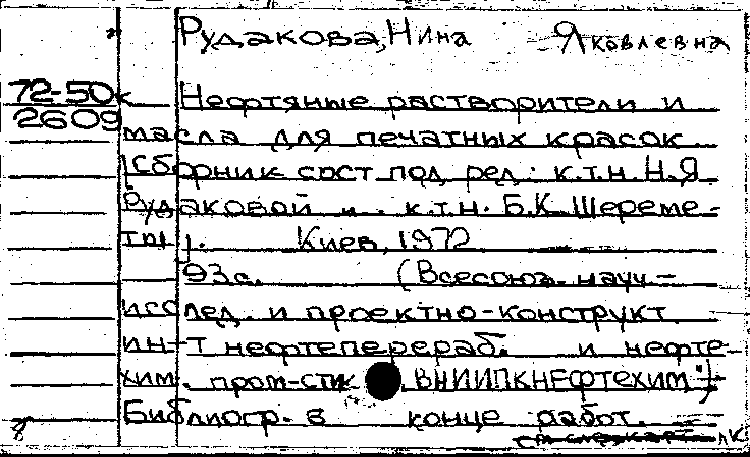 Рудакова, Нина Яковлевна
72-50к
2609
Нефтяные растворители и
масла для печатных красок
[Сборник сост под ред. к.т.н. Н.Я.
Рудаковой и . к.т.н. Б.К. Шереме-
ты]. Киев, 1972
93с. (Всесоюз. науч.-
исслед. и проектно-конструкт.
ин-т нефтеперераб. и нефте-
хим. пром-сти "ВНИИПКНЕФТЕХИМ")
Библиогр. в конце работ.